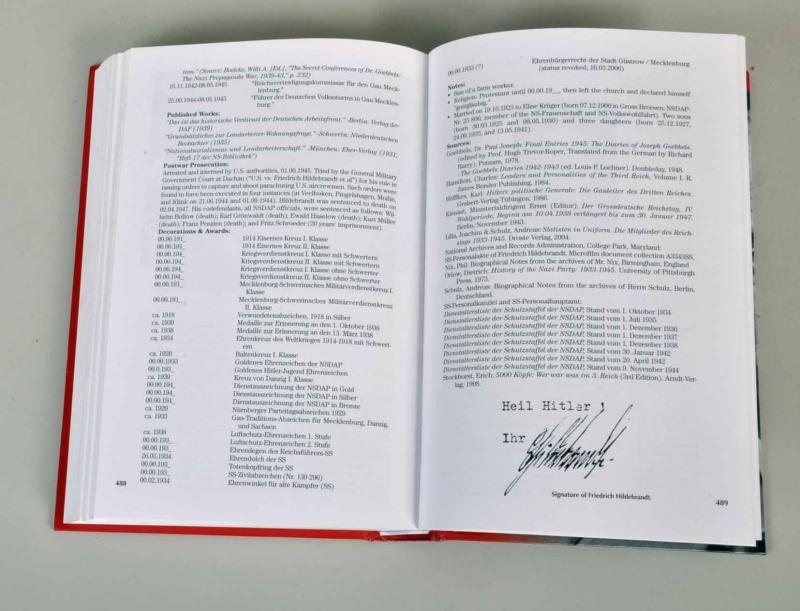 tion." (Source: Boelcke, Willi A. [Ed.], "The Secret Conferences of Dr. Goebbels:
The Nazi Propaganda War, 1939-43," p. 232)
16.11.1942-08.05.1945 "Reichsverteidigungskommissar für den Gau Meck-
lenburg."
25.09.1944-08.05.1945 "Führer des Deutschen Volksturms in Gau Mecklen-
burg."
Published Works:
"Das ist das historische Verdienst der Deutschen Arbeitsfront." -Berlin: Verlag der
DAF (1939)
"Grundsätzliches zur Landarbeiter-Wohnungsfrage." -Schwerin: Niederdeutschen
Beobachter (1935)
"Nationalsozialismus und Landarbeiterschaft." -München: Eher-Verlag (1931,
"Heft 17 der NS-Bibliothek")
Postwar Prosecution:
Arrested and interned by U.S. authorities, 01.06.1945. Tried by the General Military
Government Court at Dachau ("U.S. vs. Friedrich Hildebrandt et al") for his role in
issuing orders to capture and shoot parachuting U.S. aircrewmen. Such orders were
found to have been executed in four instances (at Veelboken, Pingelshagen, Mollin,
and Klink on 21.06.1944 and 01.09.1944). Hildebrandt was sentenced to death on
02.04.1947. His codefendants, all NSDAP officials, were sentenced as follows: Wil-
helm Bollow (death); Karl Grönwaldt (death); Ewald Haselow (death); Kurt Müller
(death); Franz Penzien (death); and Fritz Schroeder (20 years' imprisonment).
Decorations & Awards:
00.00.191_ 1914 Eisernes Kreuz I. Klasse
00.00.191_ 1914 Eisernes Kreuz II. Klasse
00.00.194_ Kriegsverdienstkreuz I. Klasse mit Schwertern
00.00.194_ Kriegsverdienstkreuz II. Klasse mit Schwertern
00.00.194_ Kriegsverdienstkreuz I. Klasse ohne Schwerter
00.00.194_ Kriegsverdienstkreuz II. Klasse ohne Schwerter
00.00.191_ Mecklenburg-Schwerinsches Militärverdienstkreuz I.
Klasse
00.00.191_ Mecklenburg-Schwerinsches Militärverdienstkreuz
II. Klasse
ca. 1918 Verwundetenabzeichen, 1918 in Silber
ca. 1939 Medaille zur Erinnerung an den 1. Oktober 1938
ca. 1938 Medaille zur Erinnerung an den 13. März 1938
ca. 1934 Ehrenkreuz des Weltkrieges 1914-1918 mit Schwert-
ern
ca. 1920 Baltenkreuz I. Klasse
00.00.193_ Goldenes Ehrenzeichen der NSDAP
00.0.193_ Goldenes Hitler-Jugend Ehrenzeichen
ca. 1939 Kreuz von Danzig I. Klasse
00.00.194_ Dienstauszeichnung der NSDAP in Gold
00.00.194_ Dienstauszeichnung der NSDAP in Silber
00.00.194_ Dienstauszeichnung der NSDAP in Bronze
ca. 1929 Nürnberger Parteitagsabzeichen 1929
ca. 1933 Gau-Traditions-Abzeichen für Mecklenburg, Danzig,
und Sachsen
ca. 1938 Luftschutz-Ehrenzeichen 1. Stufe
00.00.193_ Luftschutz-Ehrenzeichen 2. Stufe
00.00.193_ Ehrendegen des Reichsführers-SS
26.03.1934 Ehrendolch der SS
00.00.193_ Totenkopfring der SS
00.00.193_ SS-Zivilabzeichen (Nr. 139 296)
00.02.1934 Ehrenwinkel für alte Kämpfer (SS)
488
00.00.1933 (?) Ehrenbürgerrecht der Stadt Güstrow / Mecklenburg
(status revoked, 16.03.2006)
Notes:
• Son of a farm worker.
• Religion: Protestant until 00.00.19__, then left the church and declared himself
"gottgläubig."
• Married on 19.10.1923 to Elise Krüger (born 07.12.1900 in Gross Breesen; NSDAP-
Nr. 25 806, member of the NS-Frauenschaft and NS-Volkswohlfahrt). Two sons
(born 30.03.1925 and 08.05.1930) and three daughters (born 25.12.1927,
24.09.1935, and 13.05.1941).
Sources:
Goebbels, Dr. Paul Joseph: Final Entries 1945: The Diaries of Joseph Goebbels.
(edited by Prof. Hugh Trevor-Roper, Translated from the German by Richard
Barry). Putnam, 1978.
- The Goebbels Diaries 1942-1943 (ed. Louis P. Lochner). Doubleday, 1948.
Hamilton, Charles: Leaders and Personalities of the Third Reich, Volume I. R.
James Bender Publishing, 1984.
Höffkes, Karl: Hitlers politische Generale: Die Gauleiter des Dritten Reiches.
Grabert-Verlag-Tübingen, 1986.
Kienast, Ministerialdirigent Ernst (Editor): Der Grossdeutsche Reichstag, IV.
Wahlperiode, Beginn am 10.04.1938 verlängert bis zum 30. Januar 1947.
Berlin, November 1943.
Lilla, Joachim & Schulz, Andreas: Statisten in Uniform. Die Mitglieder des Reich-
stags 1933-1945. Droste Verlag, 2004.
National Archives and Records Administration, College Park, Maryland:
SS-Personalakte of Friedrich Hildebrandt. Microfilm document collection A3343SS.
Nix, Phil: Biographical Notes from the archives of Mr. Nix, Birmingham, England
Orlow, Dietrich: History of the Nazi Party: 1933-1945. University of Pittsburg
Press, 1973.
Schulz, Andreas: Biographical Notes from the archives of Herrn Schulz, Berlin,
Deutschland.
SS-Personalkanzlei and SS-Personalhauptamt:
Dienstaltersliste der Schutzstaffel der NSDAP, Stand vom 1. Oktober 1934
Dienstaltersliste der Schutzstaffel der NSDAP, Stand vom 1. Juli 1935
Dienstaltersliste der Schutzstaffel der NSDAP, Stand vom 1. Dezember 1936
Dienstaltersliste der Schutzstaffel der NSDAP, Stand vom 1. Dezember 1937
Dienstaltersliste der Schutzstaffel der NSDAP, Stand vom 1. Dezember 1938
Dienstaltersliste der Schutzstaffel der NSDAP, Stand vom 30. Januar 1942
Dienstaltersliste der Schutzstaffel der NSDAP, Stand vom 20. April 1942
Dienstaltersliste der Schutzstaffel der NSDAP, Stand vom 9. November 1944
Stockhorst, Erich: 5000 Köpfe: Wer war was im 3. Reich (3rd Edition). Arndt-Ver-
lag, 1998.
Heil Hitler !
Ihr Hildebrandt
Signature of Friedrich Hildebrandt.
489